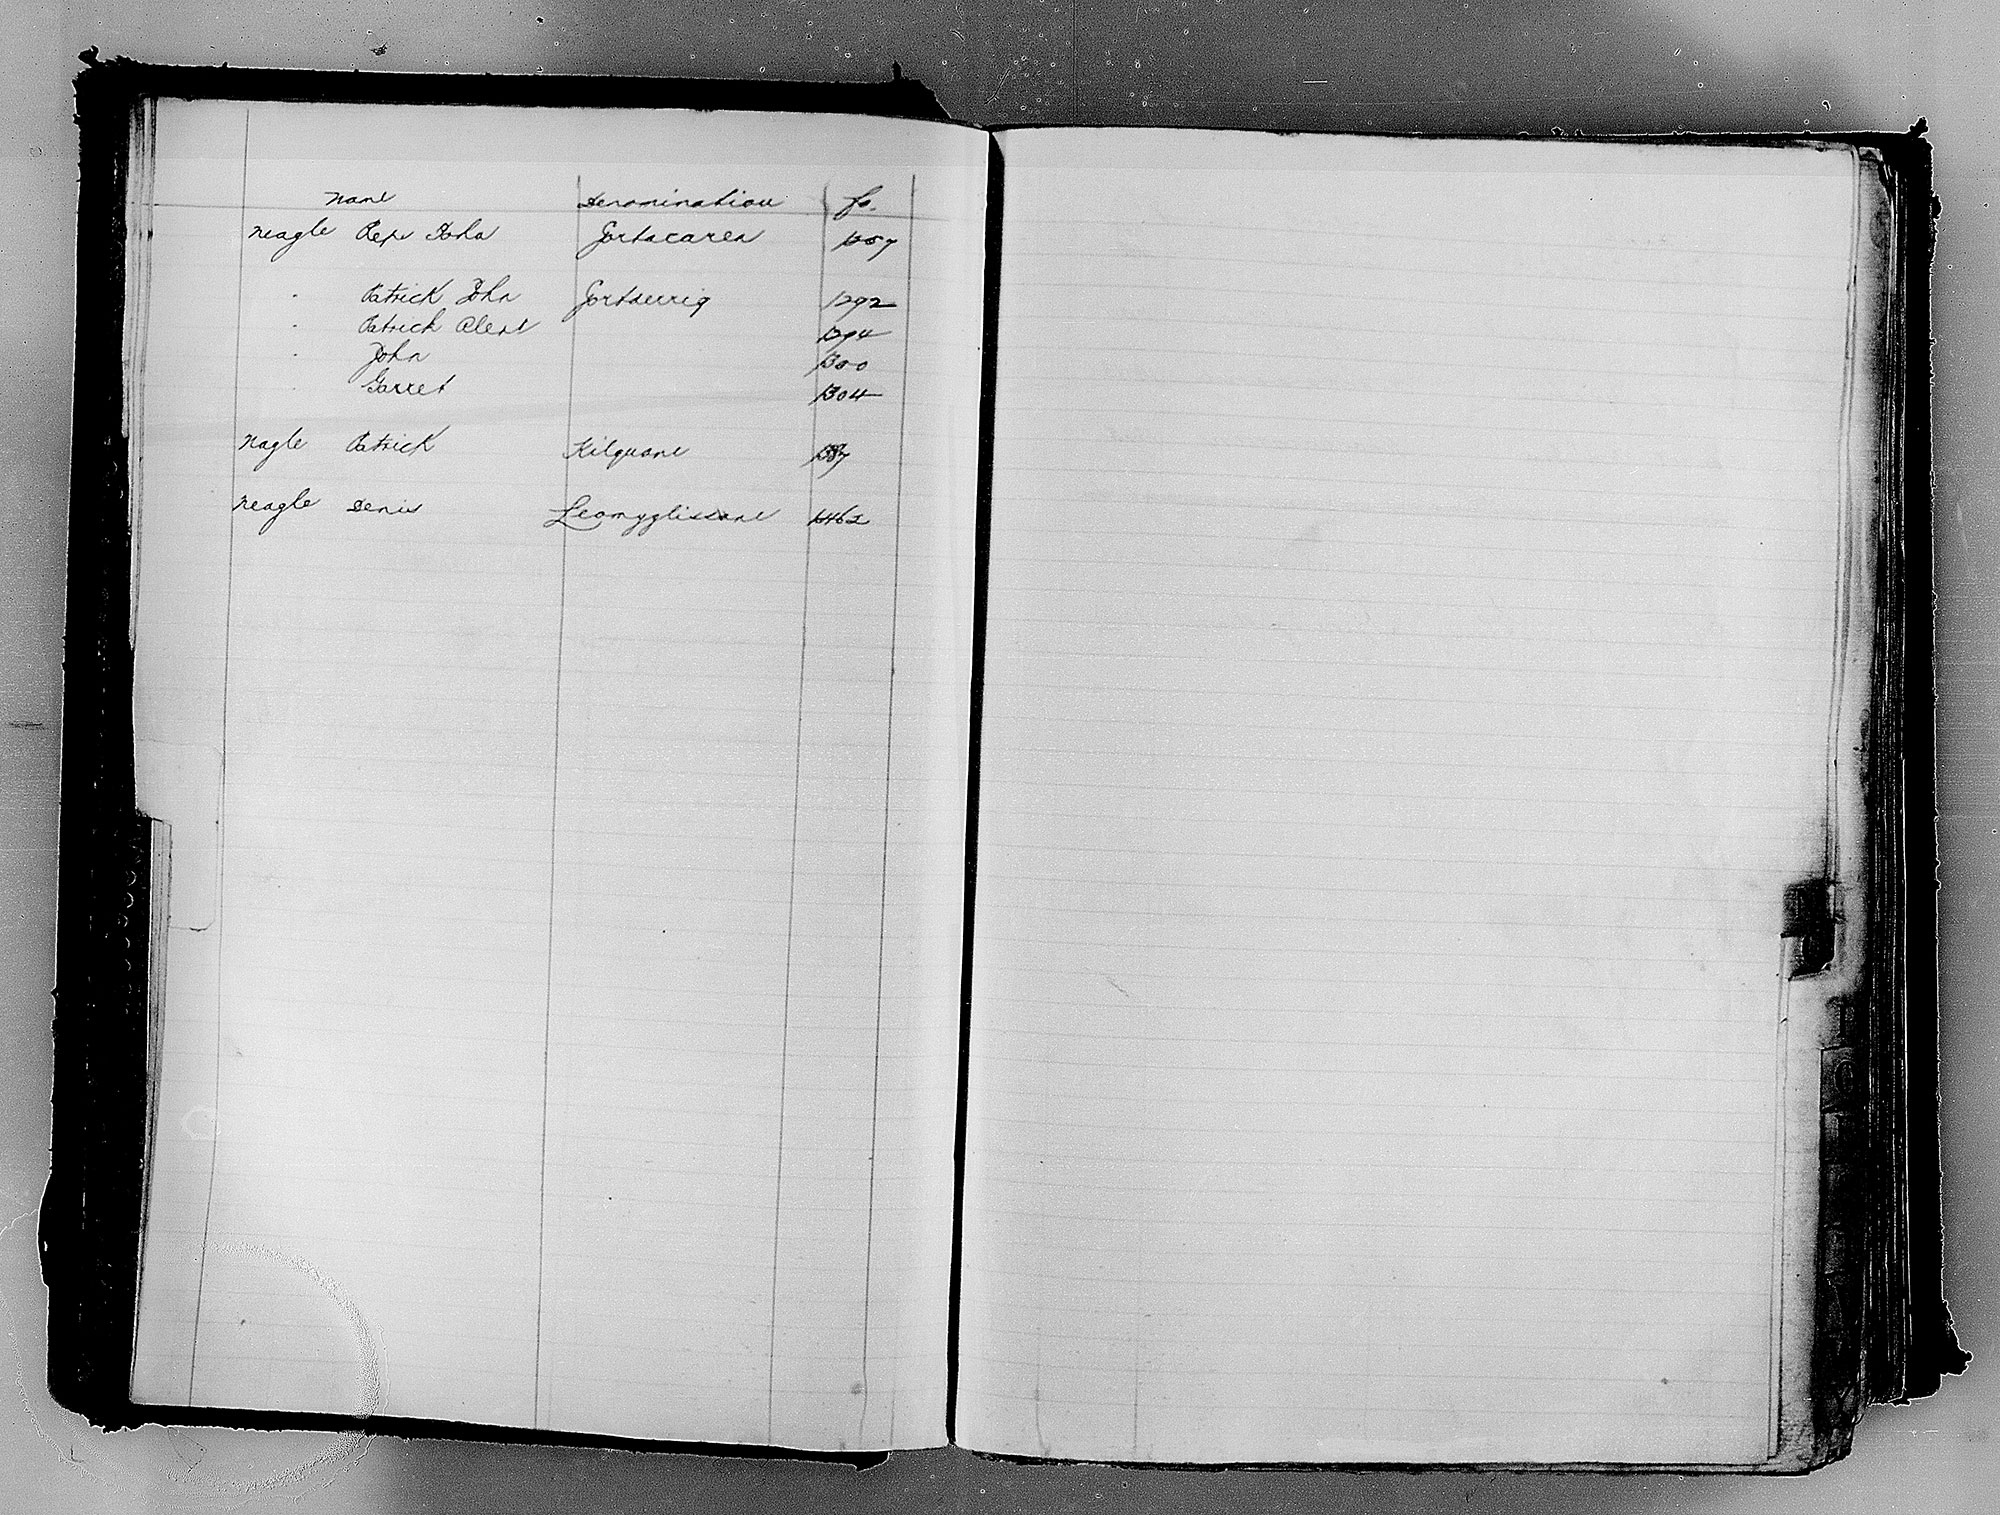 Name Denomination fo.
Neagle Reps John Gortacarea 1257
" Patrick John Gortdurrig 1292
" Patrick Clent 1294
" John 1300
" Garret 1304
Nagle Patrick Kilquane
Neagle Denis Leamyglissane 1462